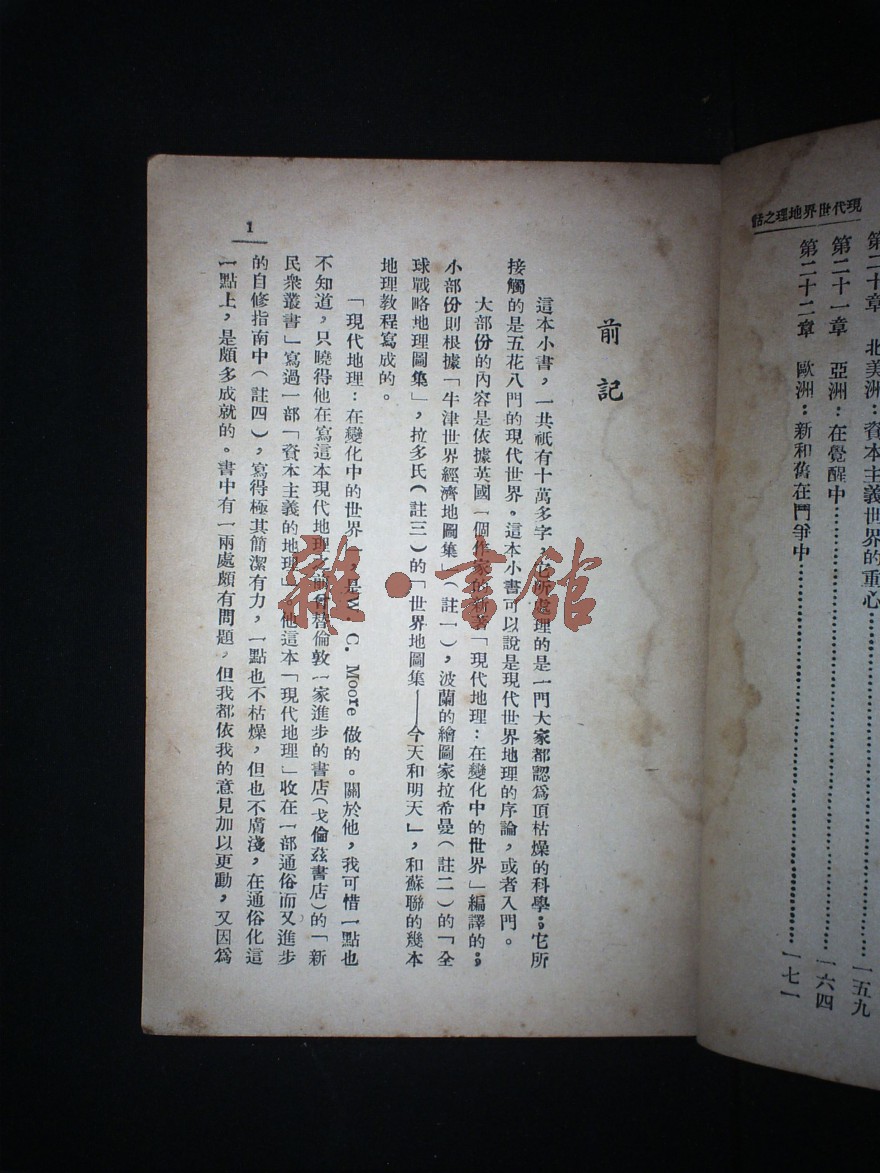 現代世界地理之話
第二十章 北美洲：資本主義世界的重心……………………一五九
第二十一章 亞洲：在覺醒中……………………一六四
第二十二章 歐洲：新和舊在鬥爭中……………………一七一
前記
這本小書，一共祇有十萬多字，它所處理的是一門大家都認爲頂枯燥的科學；它所
接觸的是五花八門的現代世界。這本小書可以說是現代世界地理的序論，或者入門。
大部份的內容是依據英國一個作家的新著「現代地理：在變化中的世界」編譯的；
小部份則根據「牛津世界經濟地圖集」（註一），波蘭的繪圖家拉希曼（註二）的「全
球戰略地理圖集」，拉多氏（註三）的「世界地圖集——今天和明天」，和蘇聯的幾本
地理教程寫成的。
「現代地理：在變化中的世界」，是W. C. Moore 做的。關於他，我可惜一點也
不知道，只曉得他在寫這本現代地理之前曾替倫敦一家進步的書店（戈倫茲書店）的「新
民衆叢書」寫過一部「資本主義的地理」。他這本「現代地理」收在一部通俗而又進步
的自修指南中（註四），寫得極其簡潔有力，一點也不枯燥，但也不膚淺，在通俗化這
一點上，是頗多成就的。書中有一兩處頗有問題，但我都依我的意見加以更動，又因爲
1
雜·書館